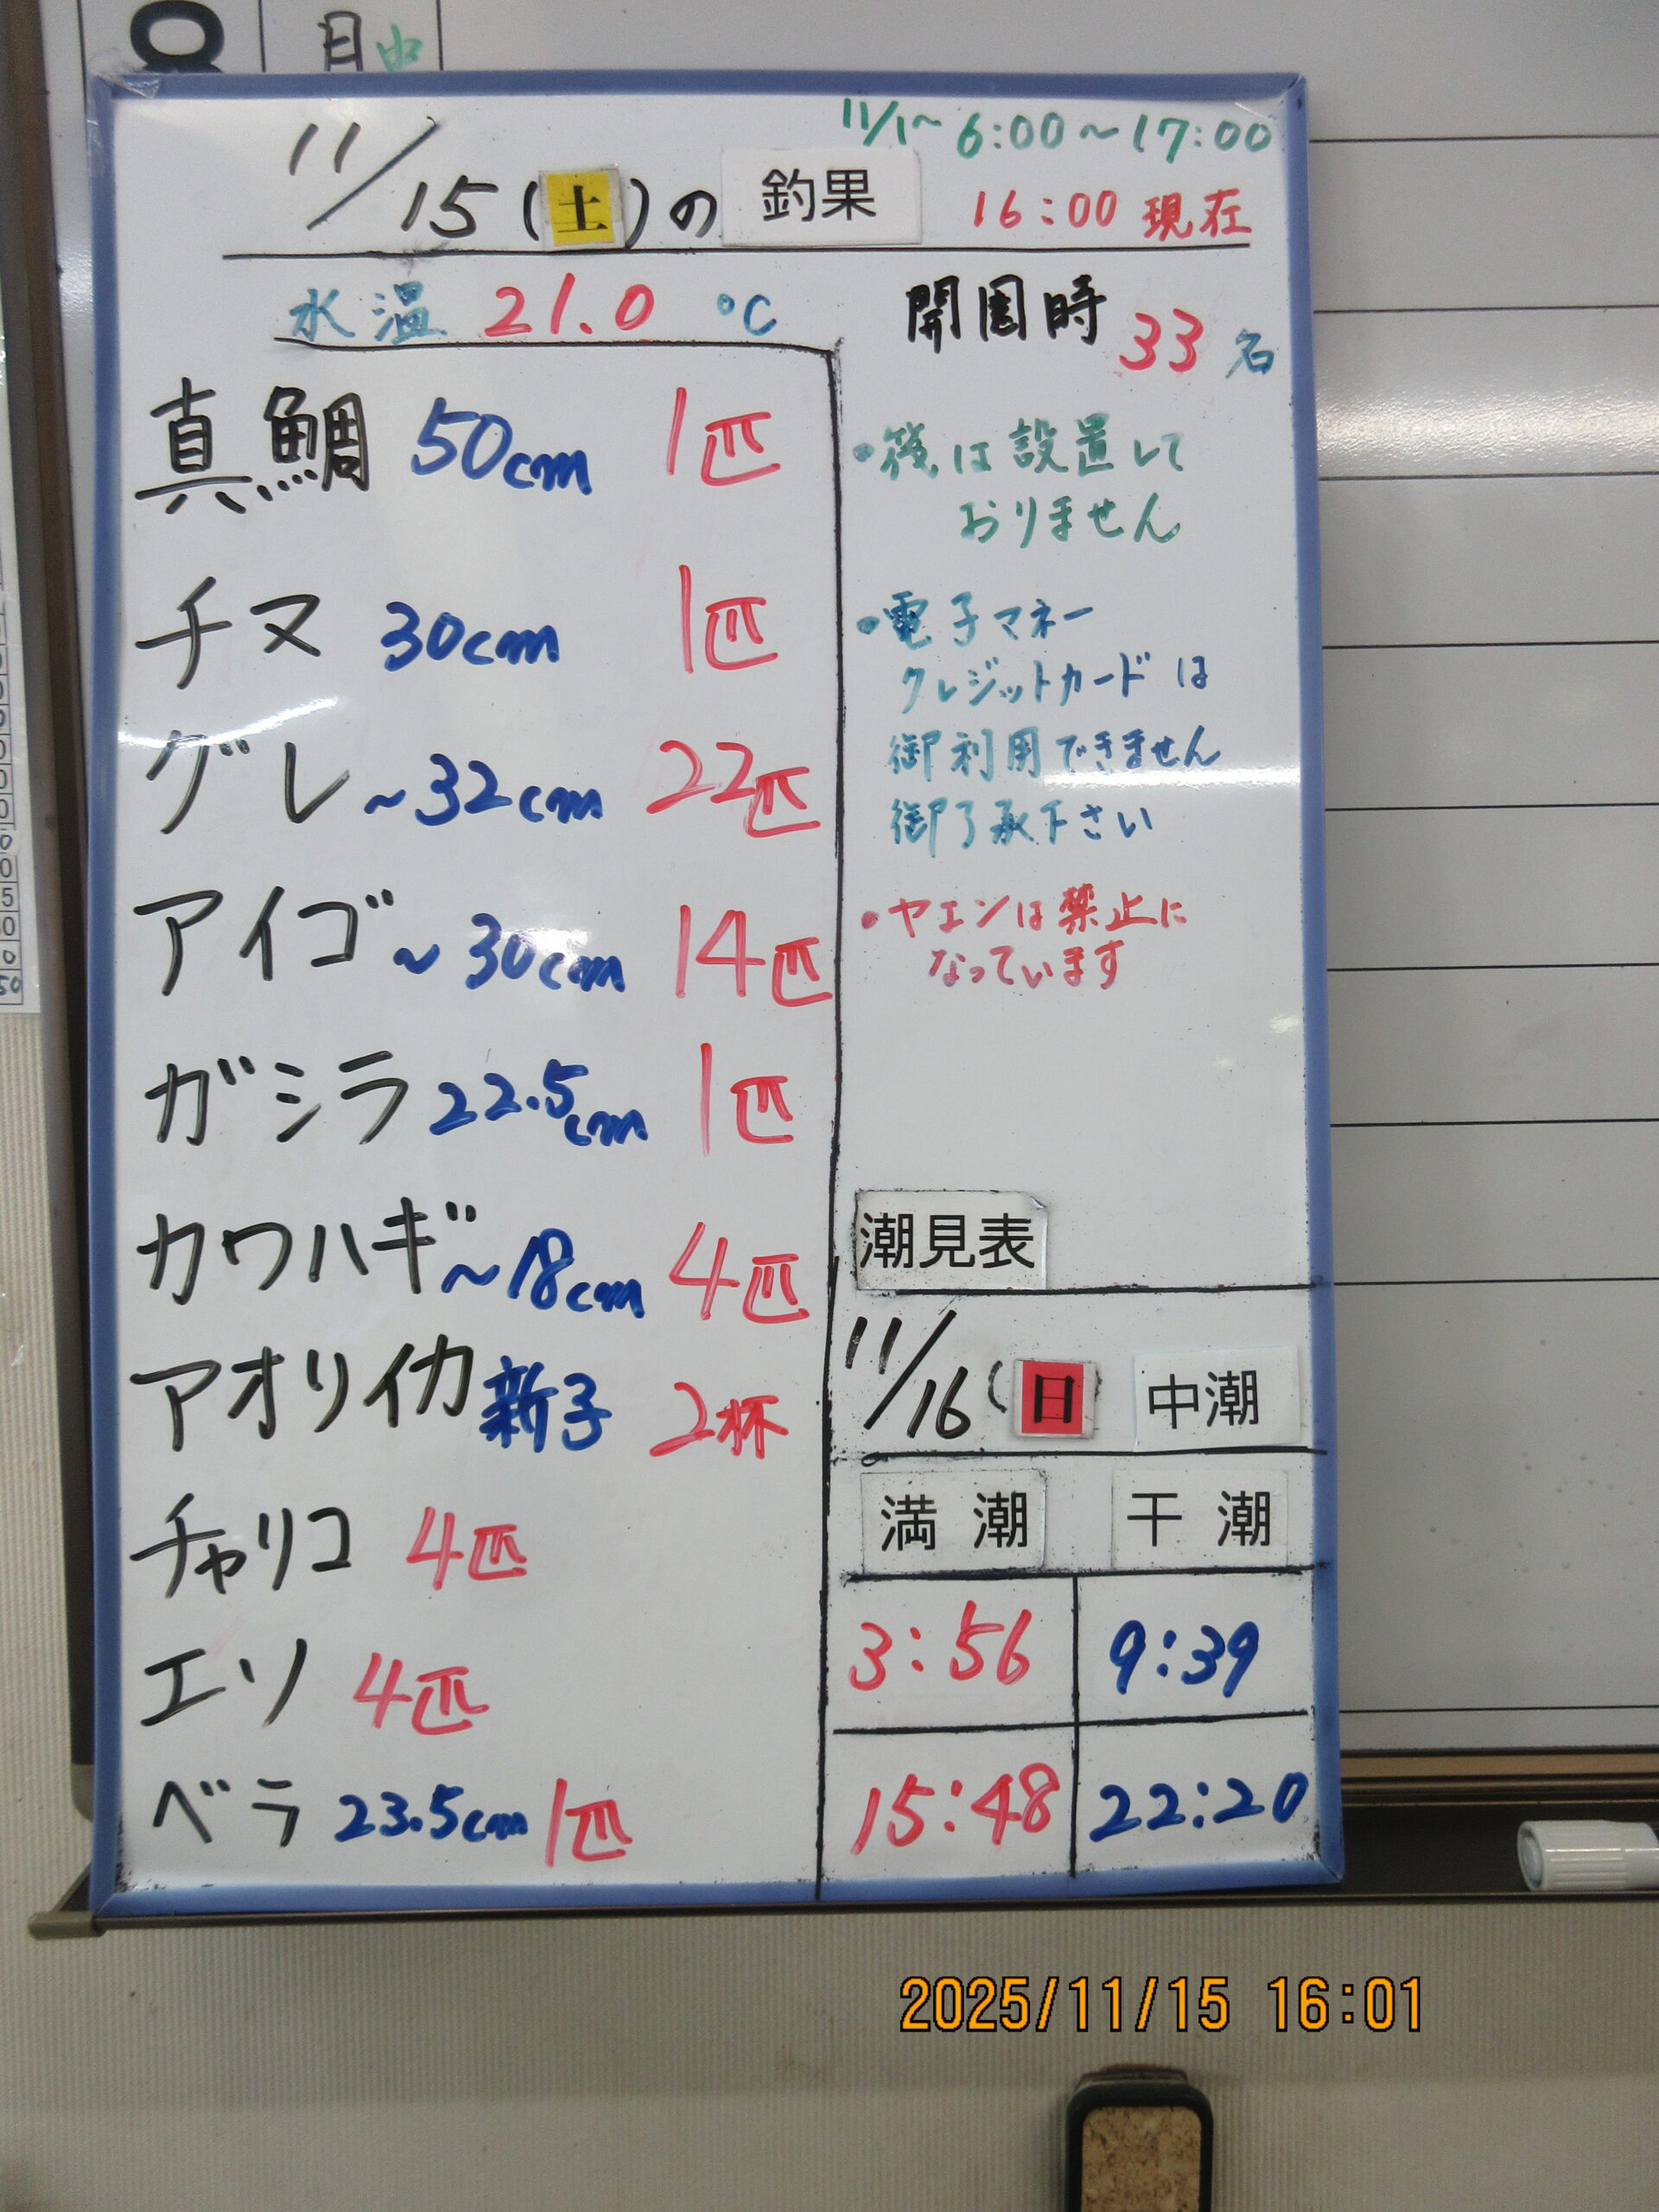 8 月 中
11/1~ 6:00~17:00
11/15(土)の 釣果 16:00 現在
水温 21.0 ℃
真鯛 50cm 1匹
チヌ 30cm 1匹
グレ ~32cm 22匹
アイゴ ~30cm 14匹
ガシラ 22.5cm 1匹
カワハギ ~18cm 4匹
アオリイカ 新子 2杯
チャリコ 4匹
エソ 4匹
ベラ 23.5cm 1匹
開園時 33名
・筏は設置して
おりません
・電子マネー
クレジットカードは
御利用できません
御了承下さい
・ヤエンは禁止に
なっています
潮見表
11/16(日) 中潮
満潮 干潮
3:56 9:39
15:48 22:20
2025/11/15 16:01